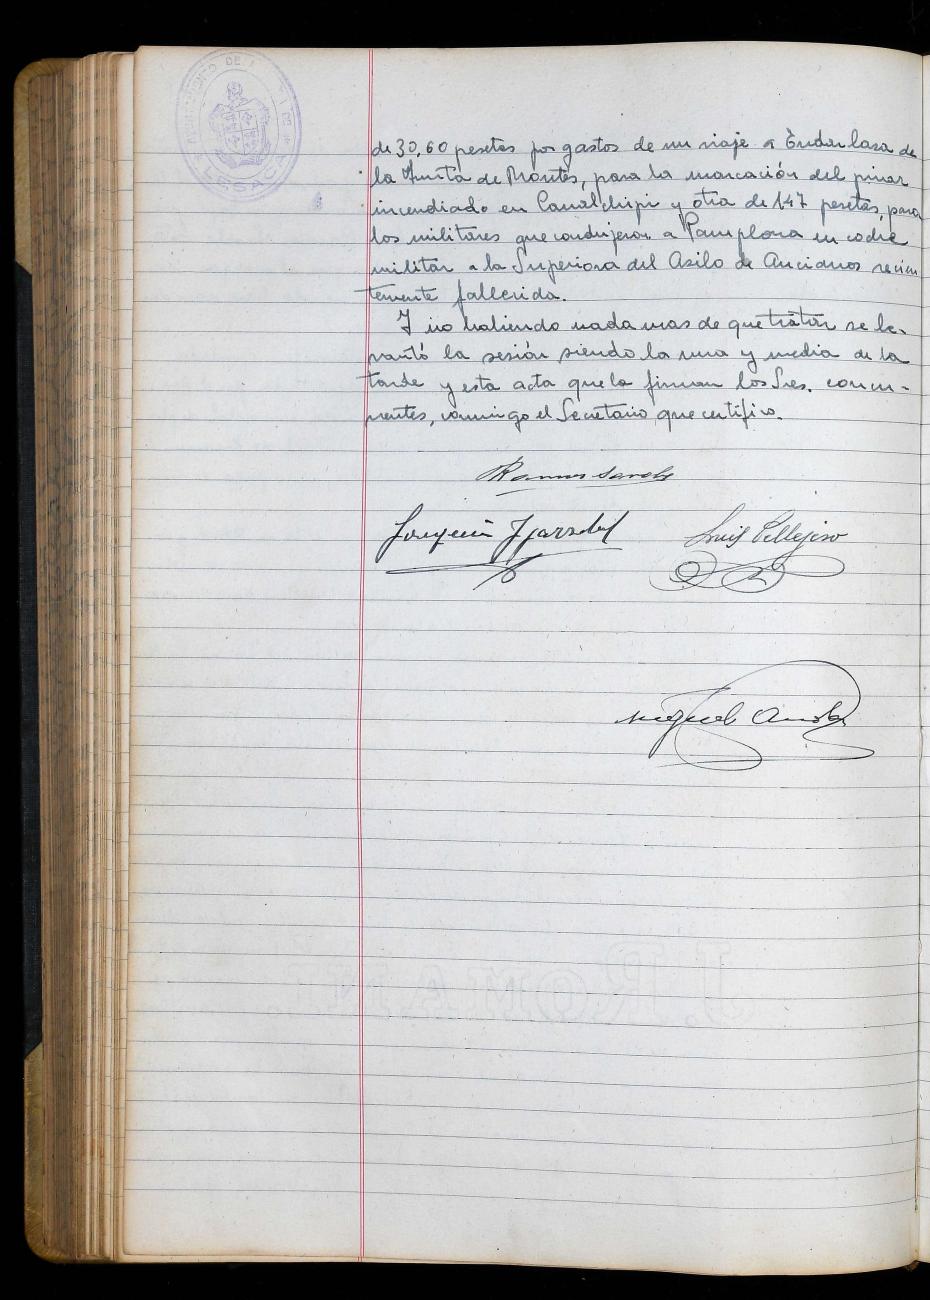 AYUNTAMIENTO DE
LESACA
de 30,60 pesetas por gastos de un viaje a Endarlasa de
la Junta de Montes, para la marcación del pinar
incendiado en Canalchipi y otra de 147 pesetas, para
los militares que condujeron a Pamplona en coche
militar a la Superiora del Asilo de Ancianos recien
temente fallecida.
Y no habiendo nada mas de que tratar se le-
vantó la sesión siendo la una y media de la
tarde y esta acta que la firman los Sres. concu-
rrentes, conmigo el Secretario que certifico.
Ramon
Joaquin
Luis Pellejero
Miguel
J. ROMANÍ